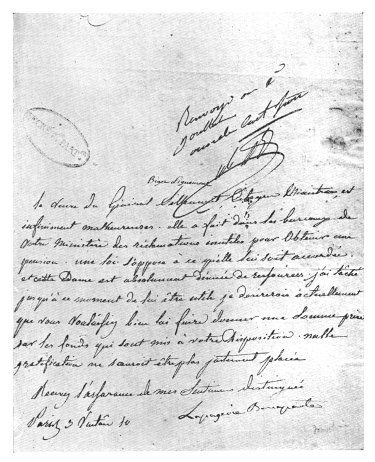 Renvoyé
La Veuve du Général Citoyen Ministre, est
infiniment malheureuse. elle a fait dans les bureaux de
votre Ministère des réclamations inutiles pour obtenir une
pension. une loi s'oppose à ce qu'elle lui soit accordée.
et cette Dame est absolument dénuée de resources; j'ai tâché
jusqu'à ce moment de lui être utile je desirerois actuellement
que vous voulussiez bien lui faire donner une somme prise
sur les fonds qui sont mis à votre disposition. nulle
gratification ne sauroit être plus justement placée
Recevez l'assurance de mes sentimens distingués
Lapagerie Bonaparte
Paris 3 10